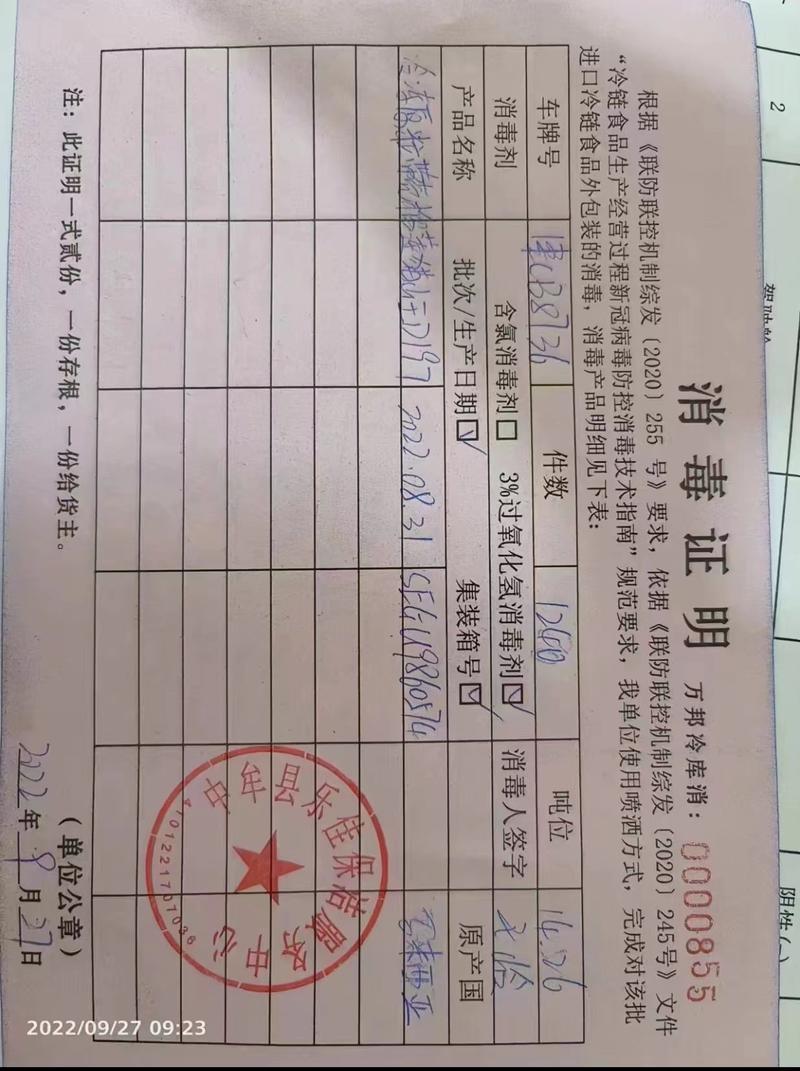 消毒证明
万邦冷库消：0000855
根据《联防联控机制综发〔2020〕255 号》要求，依据《联防联控机制综发〔2020〕245号》文件
“冷链食品生产经营过程新冠病毒防控消毒技术指南”规范要求，我单位使用喷洒方式，完成对该批
进口冷链食品外包装的消毒，消毒产品明细见下表：
车牌号 件数 1240 吨位 14.26
消毒剂 含氯消毒剂☐ 3%过氧化氢消毒剂☑ 消毒人签字
产品名称 批次/生产日期☑ 集装箱号☑ 原产国
D197 2022.08.31 SEGU9860574 马来西亚
注：此证明一式贰份，一份存根，一份给货主。
（单位公章）
2022年9月27日
中牟县乐佳保洁服务中心
4101221707036
2022/09/27 09:23
2
阴性(